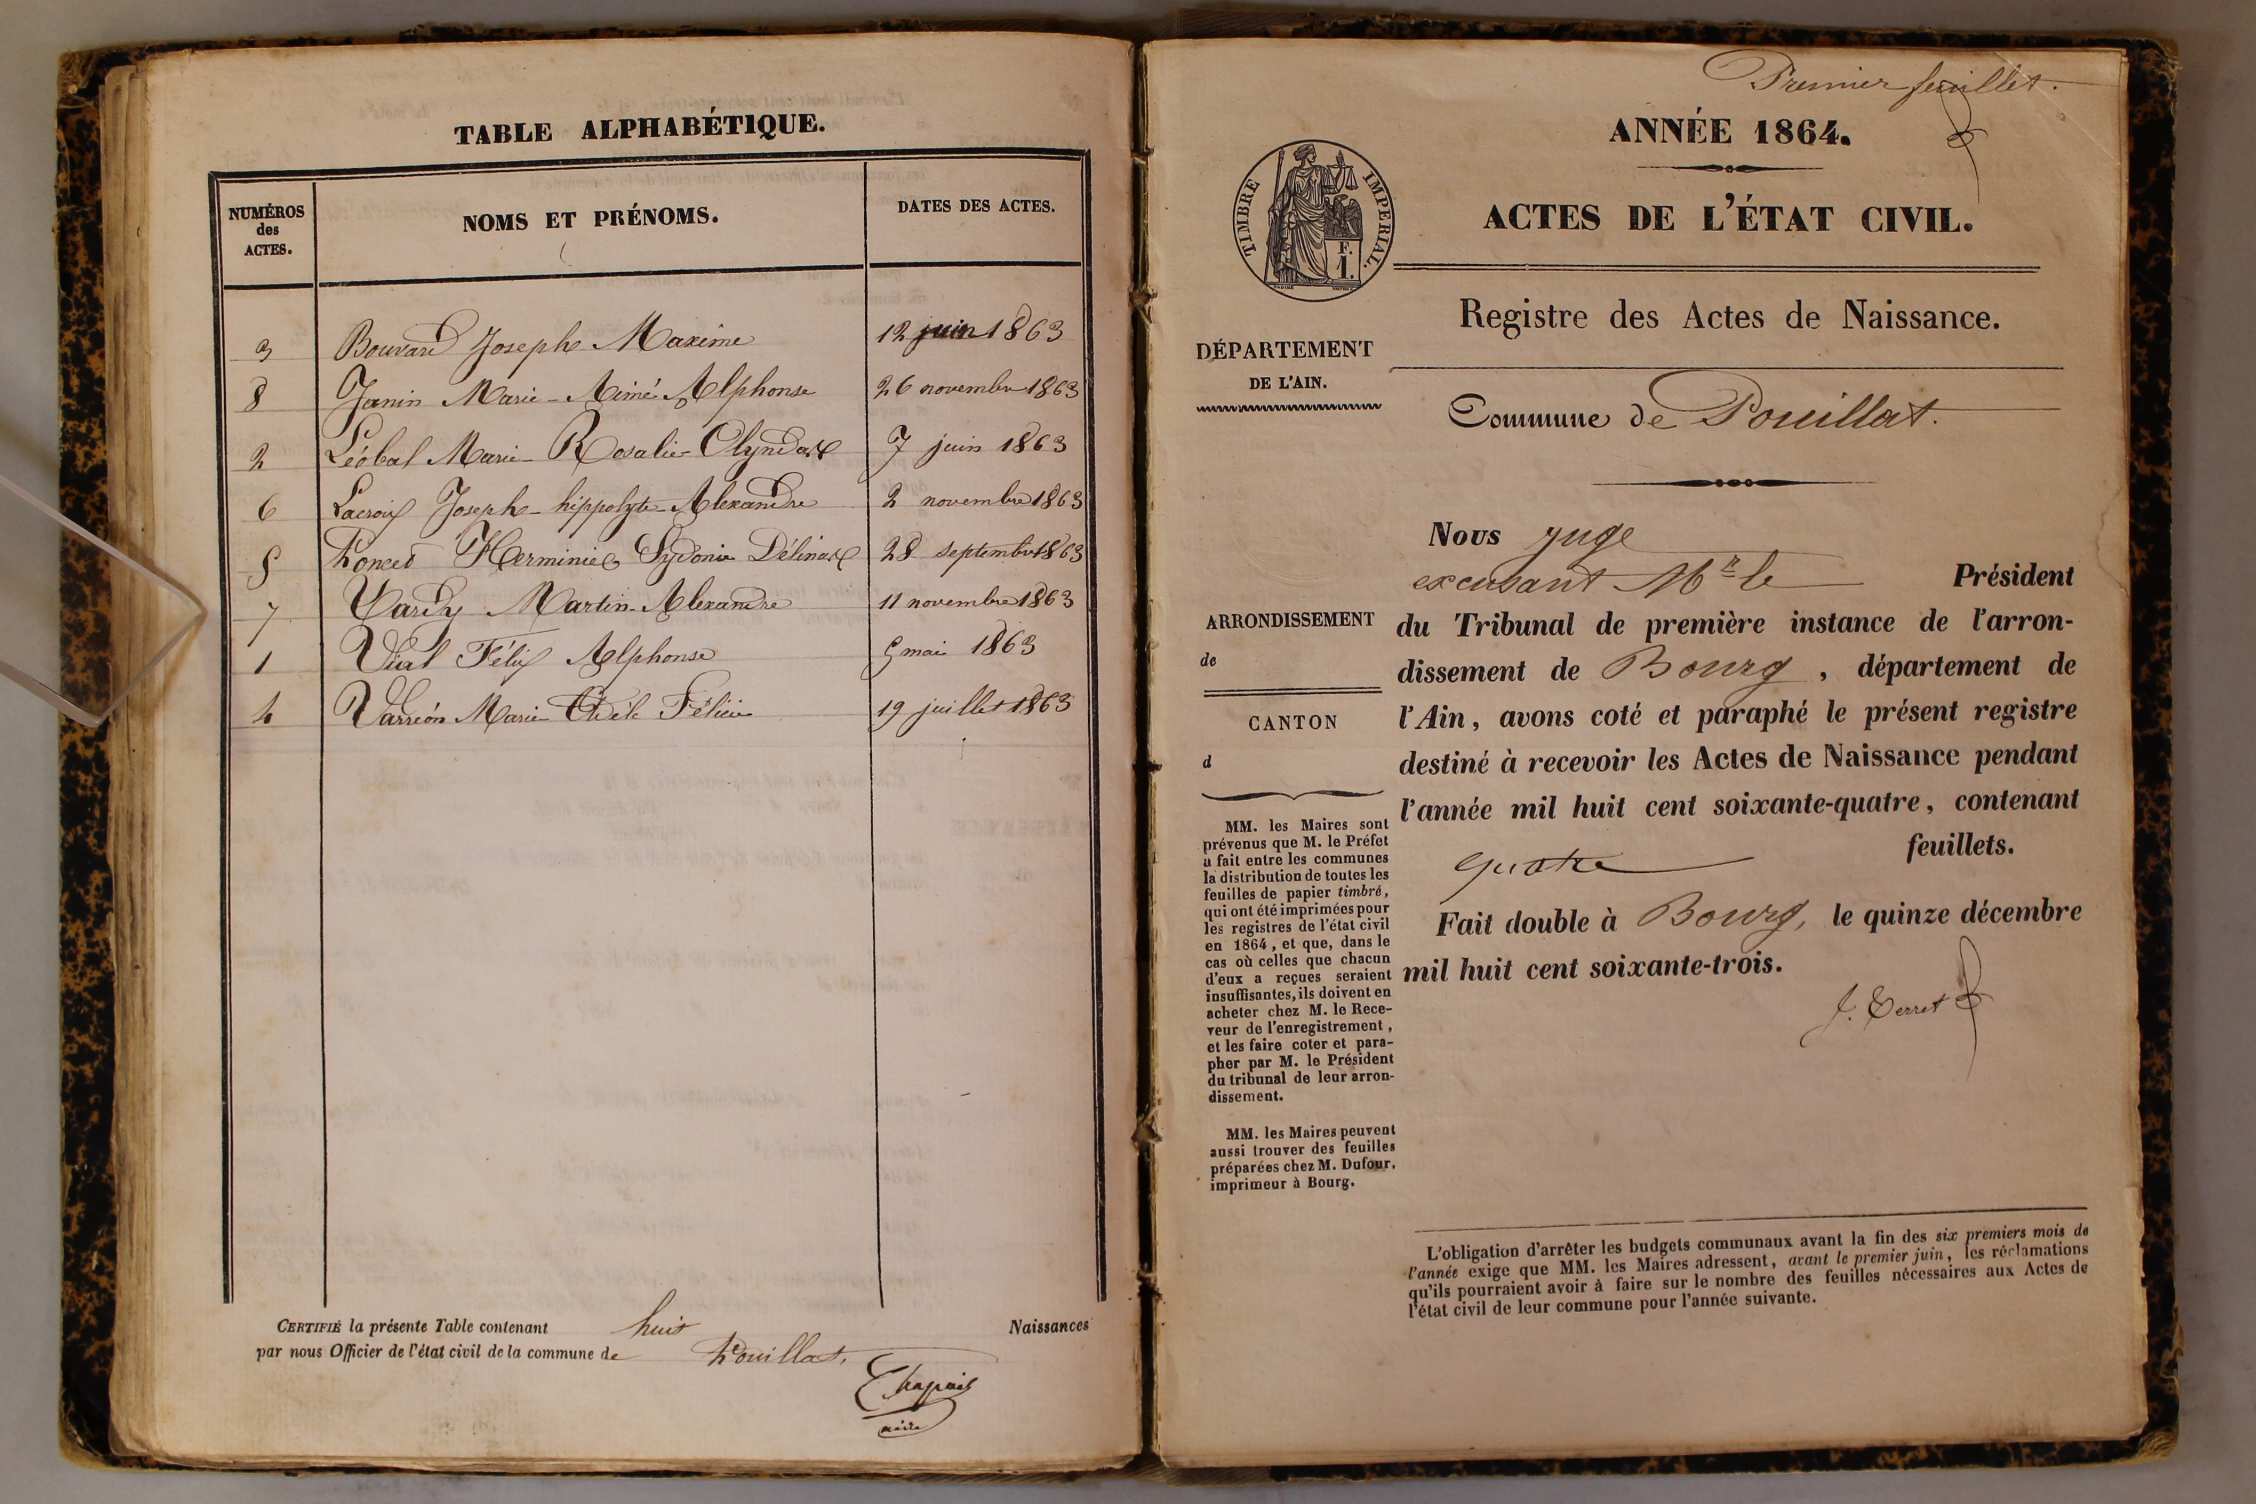 TABLE ALPHABÉTIQUE.
NUMÉROS
des
ACTES.
NOMS ET PRÉNOMS.
DATES DES ACTES.
3 Bouvard Joseph Maxime 12 juin 1863
8 Janin Marie-Aimé Alphonse 26 novembre 1863
2 Léobal Marie-Rosalie- 7 juin 1863
6 Lacroix Joseph-hippolyte-Alexandre 2 novembre 1863
5 Poncet Herminie Sydonie 28 septembre 1863
7 Martin-Alexandre 11 novembre 1863
1 Vial Félix Alphonse 5 mai 1863
4 Marie 19 juillet 1863
CERTIFIÉ la présente Table contenant huit Naissances
par nous Officier de l'état civil de la commune de Pouillat.
Chapuis
maire
Premier feuillet.
ANNÉE 1864.
ACTES DE L'ÉTAT CIVIL.
TIMBRE IMPERIAL.
F.
1.
Registre des Actes de Naissance.
DÉPARTEMENT
DE L'AIN.
Commune de Pouillat.
Nous juge
excusant Mr le Président
du Tribunal de première instance de l'arron-
dissement de Bourg, département de
l'Ain, avons coté et paraphé le présent registre
destiné à recevoir les Actes de Naissance pendant
l'année mil huit cent soixante-quatre, contenant
quatre feuillets.
Fait double à Bourg, le quinze décembre
mil huit cent soixante-trois.
J. Perret
ARRONDISSEMENT
de
CANTON
d
MM. les Maires sont
prévenus que M. le Préfet
a fait entre les communes
la distribution de toutes les
feuilles de papier timbré,
qui ont été imprimées pour
les registres de l'état civil
en 1864, et que, dans le
cas où celles que chacun
d'eux a reçues seraient
insuffisantes, ils doivent en
acheter chez M. le Rece-
veur de l'enregistrement,
et les faire coter et para-
pher par M. le Président
du tribunal de leur arron-
dissement.
MM. les Maires peuvent
aussi trouver des feuilles
préparées chez M. Dufour,
imprimeur à Bourg.
L'obligation d'arrêter les budgets communaux avant la fin des six premiers mois de
l'année exige que MM. les Maires adressent, avant le premier juin, les réclamations
qu'ils pourraient avoir à faire sur le nombre des feuilles nécessaires aux Actes de
l'état civil de leur commune pour l'année suivante.